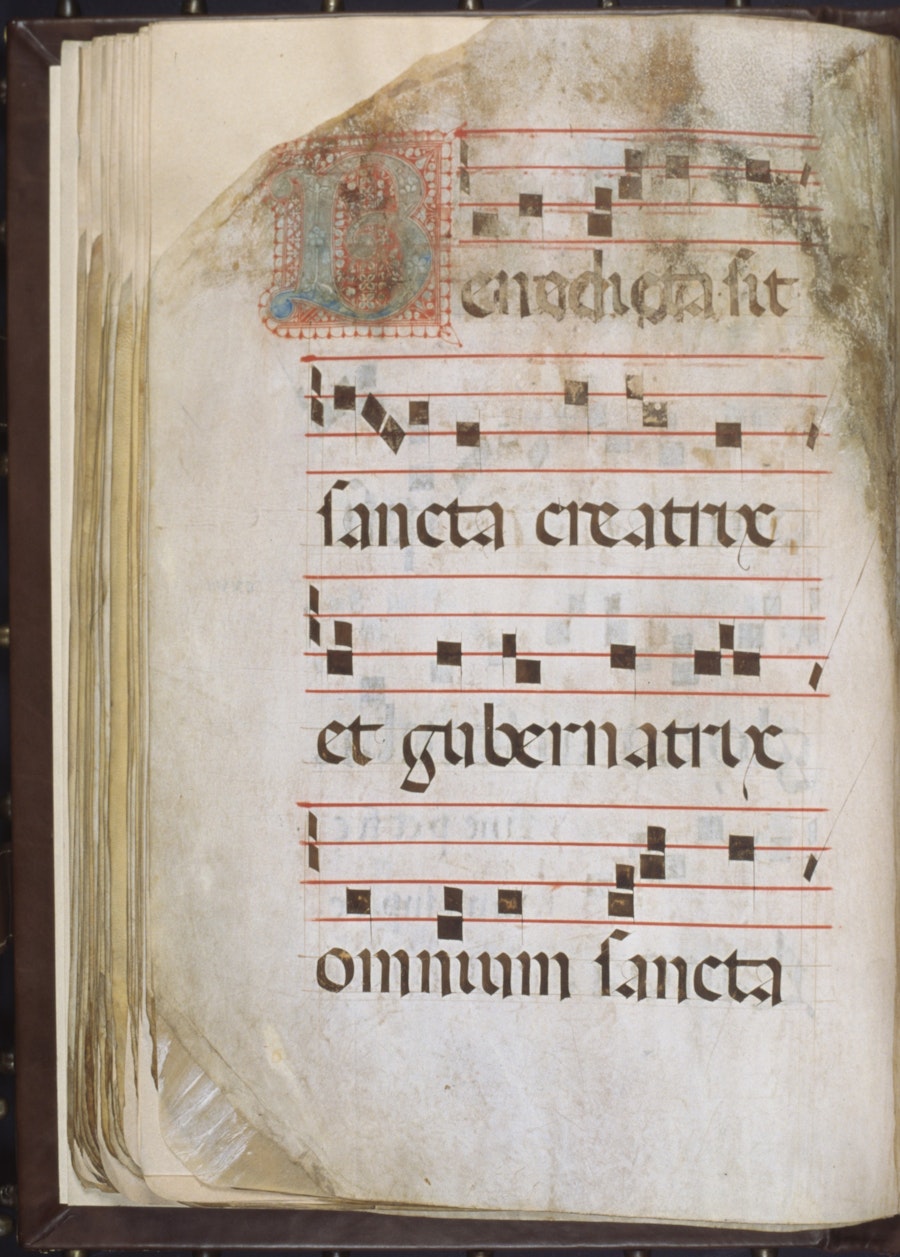 Benedicta sit
sancta creatrix
et gubernatrix
omnium sancta